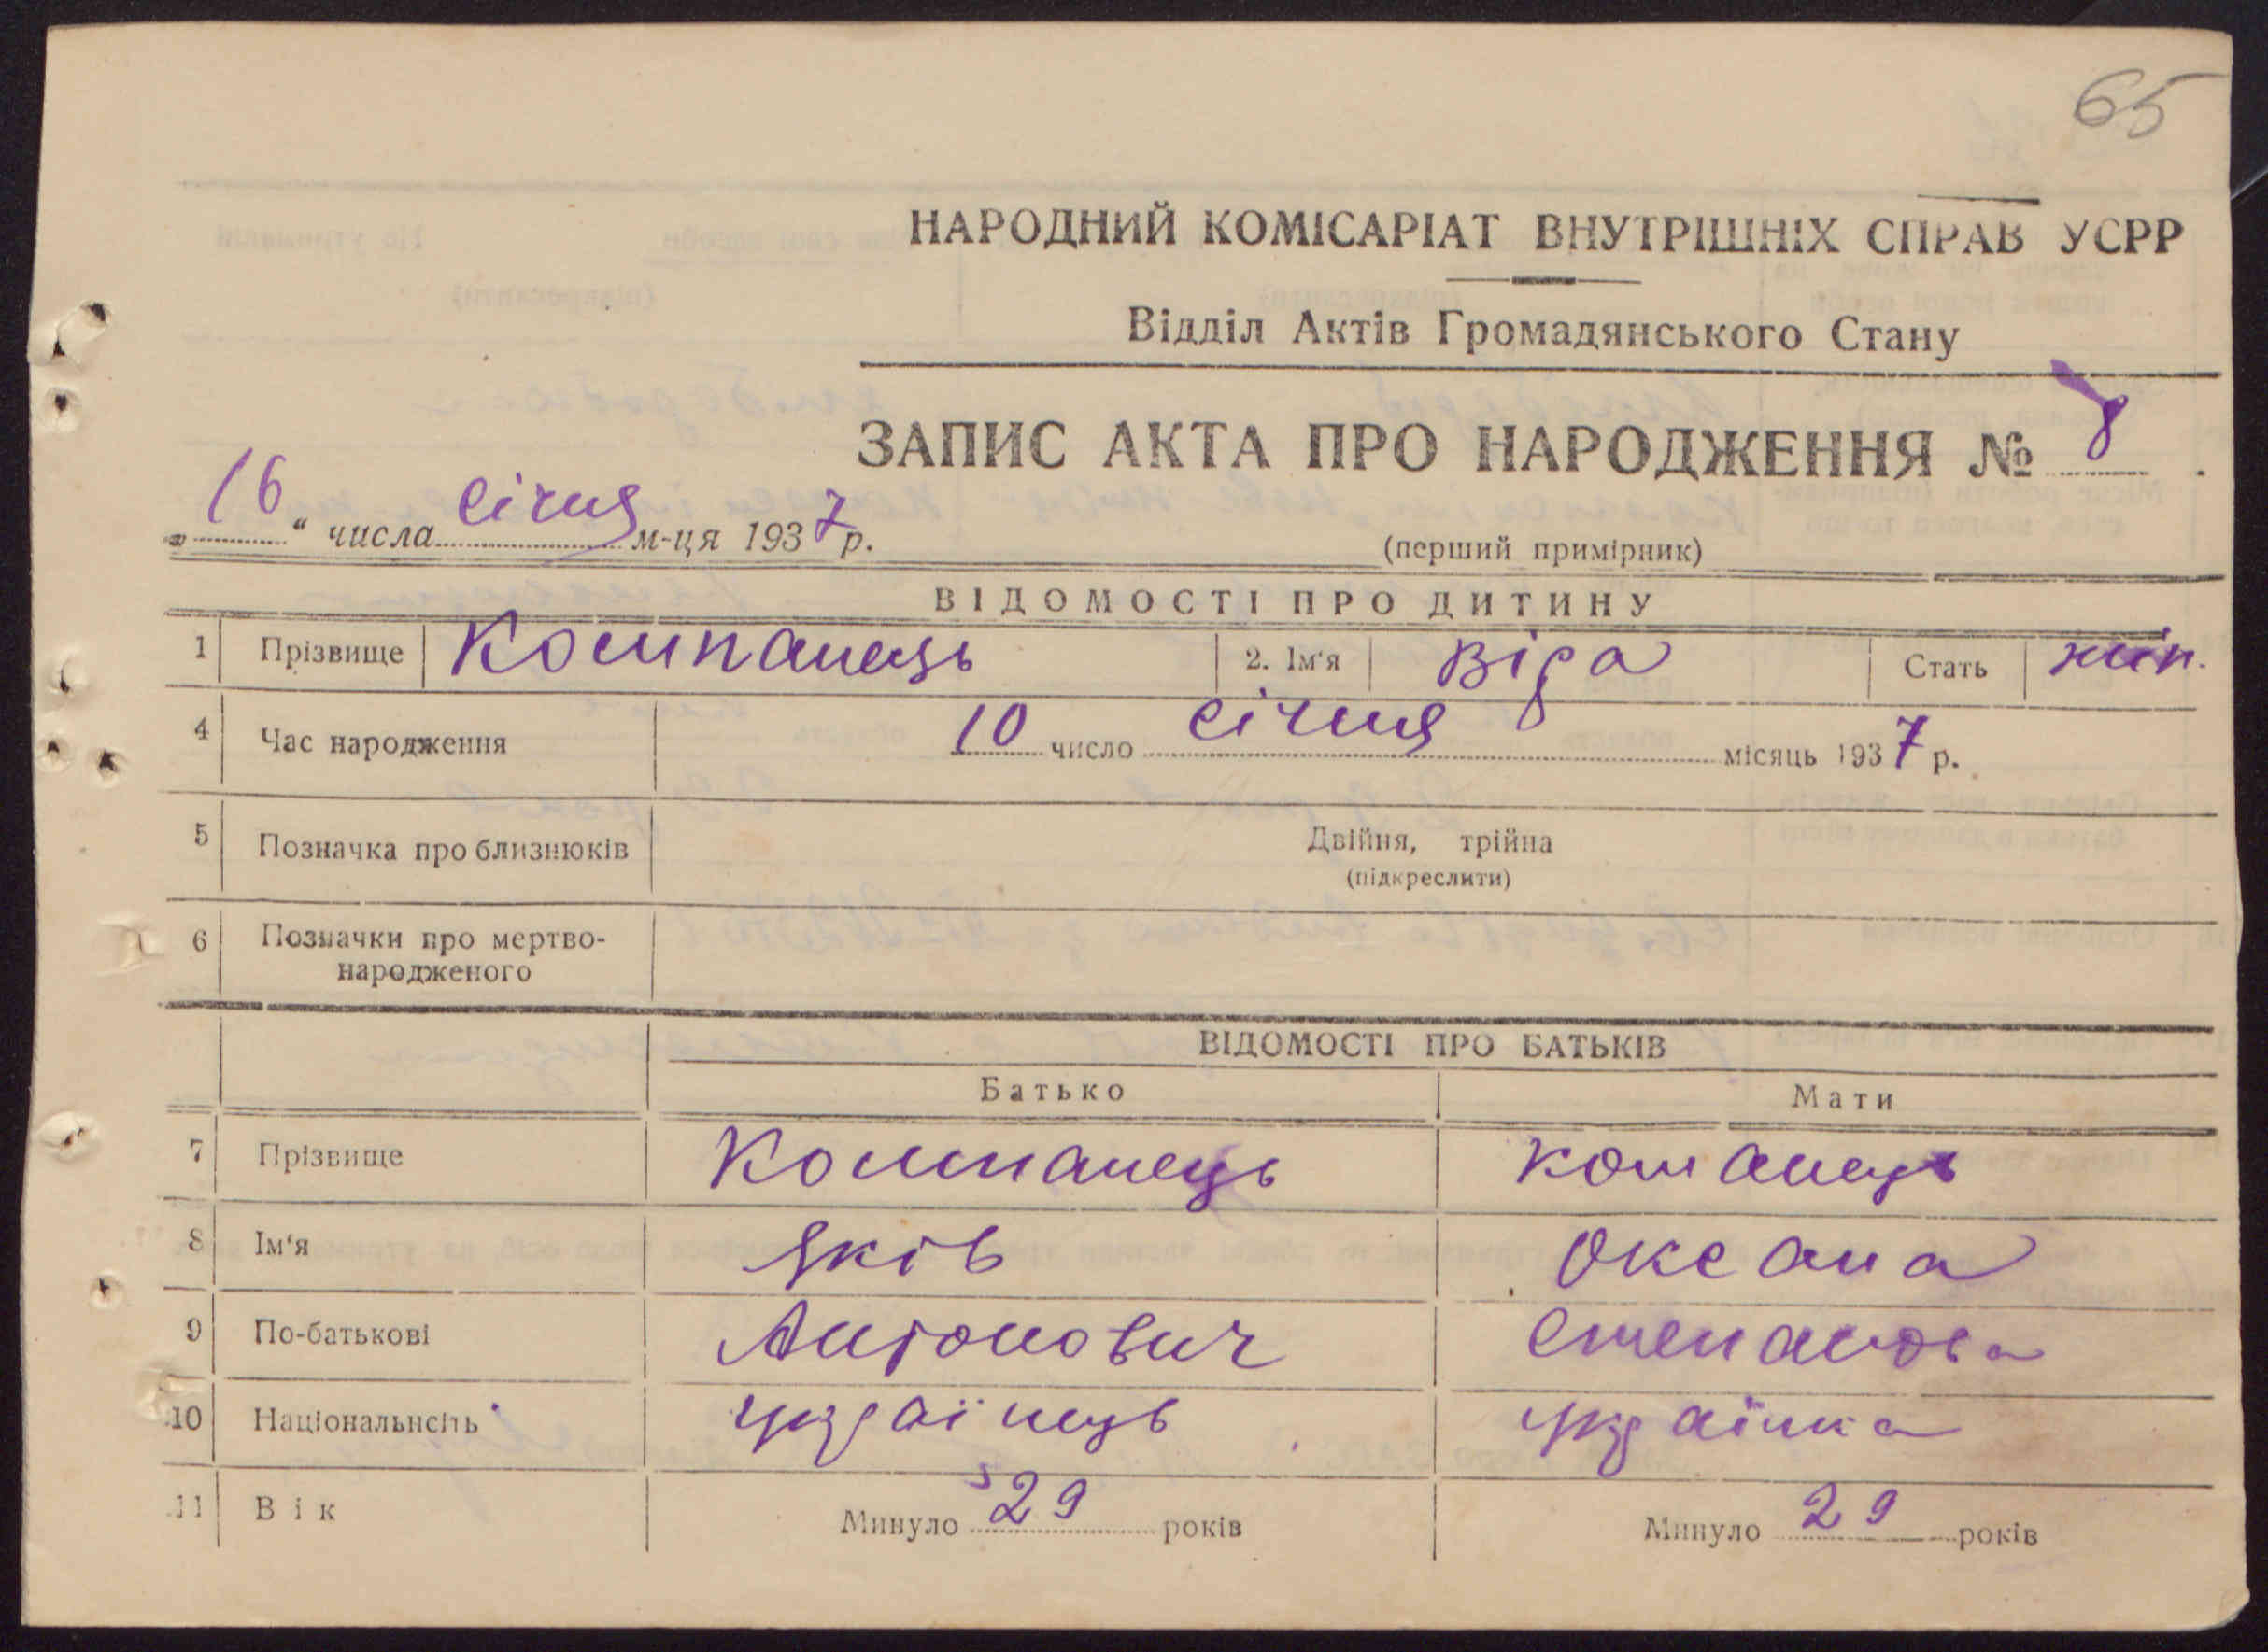 65
НАРОДНИЙ КОМІСАРІАТ ВНУТРІШНІХ СПРАВ УСРР
Відділ Актів Громадянського Стану
ЗАПИС АКТА ПРО НАРОДЖЕННЯ № 8.
„16“ числа січня м-ця 1937 р.
(перший примірник)
ВІДОМОСТІ ПРО ДИТИНУ
1 Прізвище Компанець 2. Ім'я Віра Стать жін.
4 Час народження 10 число січня місяць 1937 р.
5 Позначка про близнюків Двійня, трійна
(підкреслити)
6 Позначки про мертво-
народженого
ВІДОМОСТІ ПРО БАТЬКІВ
Батько Мати
7 Прізвище Компанець Компанець
8 Ім'я Яків Оксана
9 По-батькові Антонович Степанова
10 Національнсіть українець українка
11 Вік Минуло 29 років Минуло 29 років